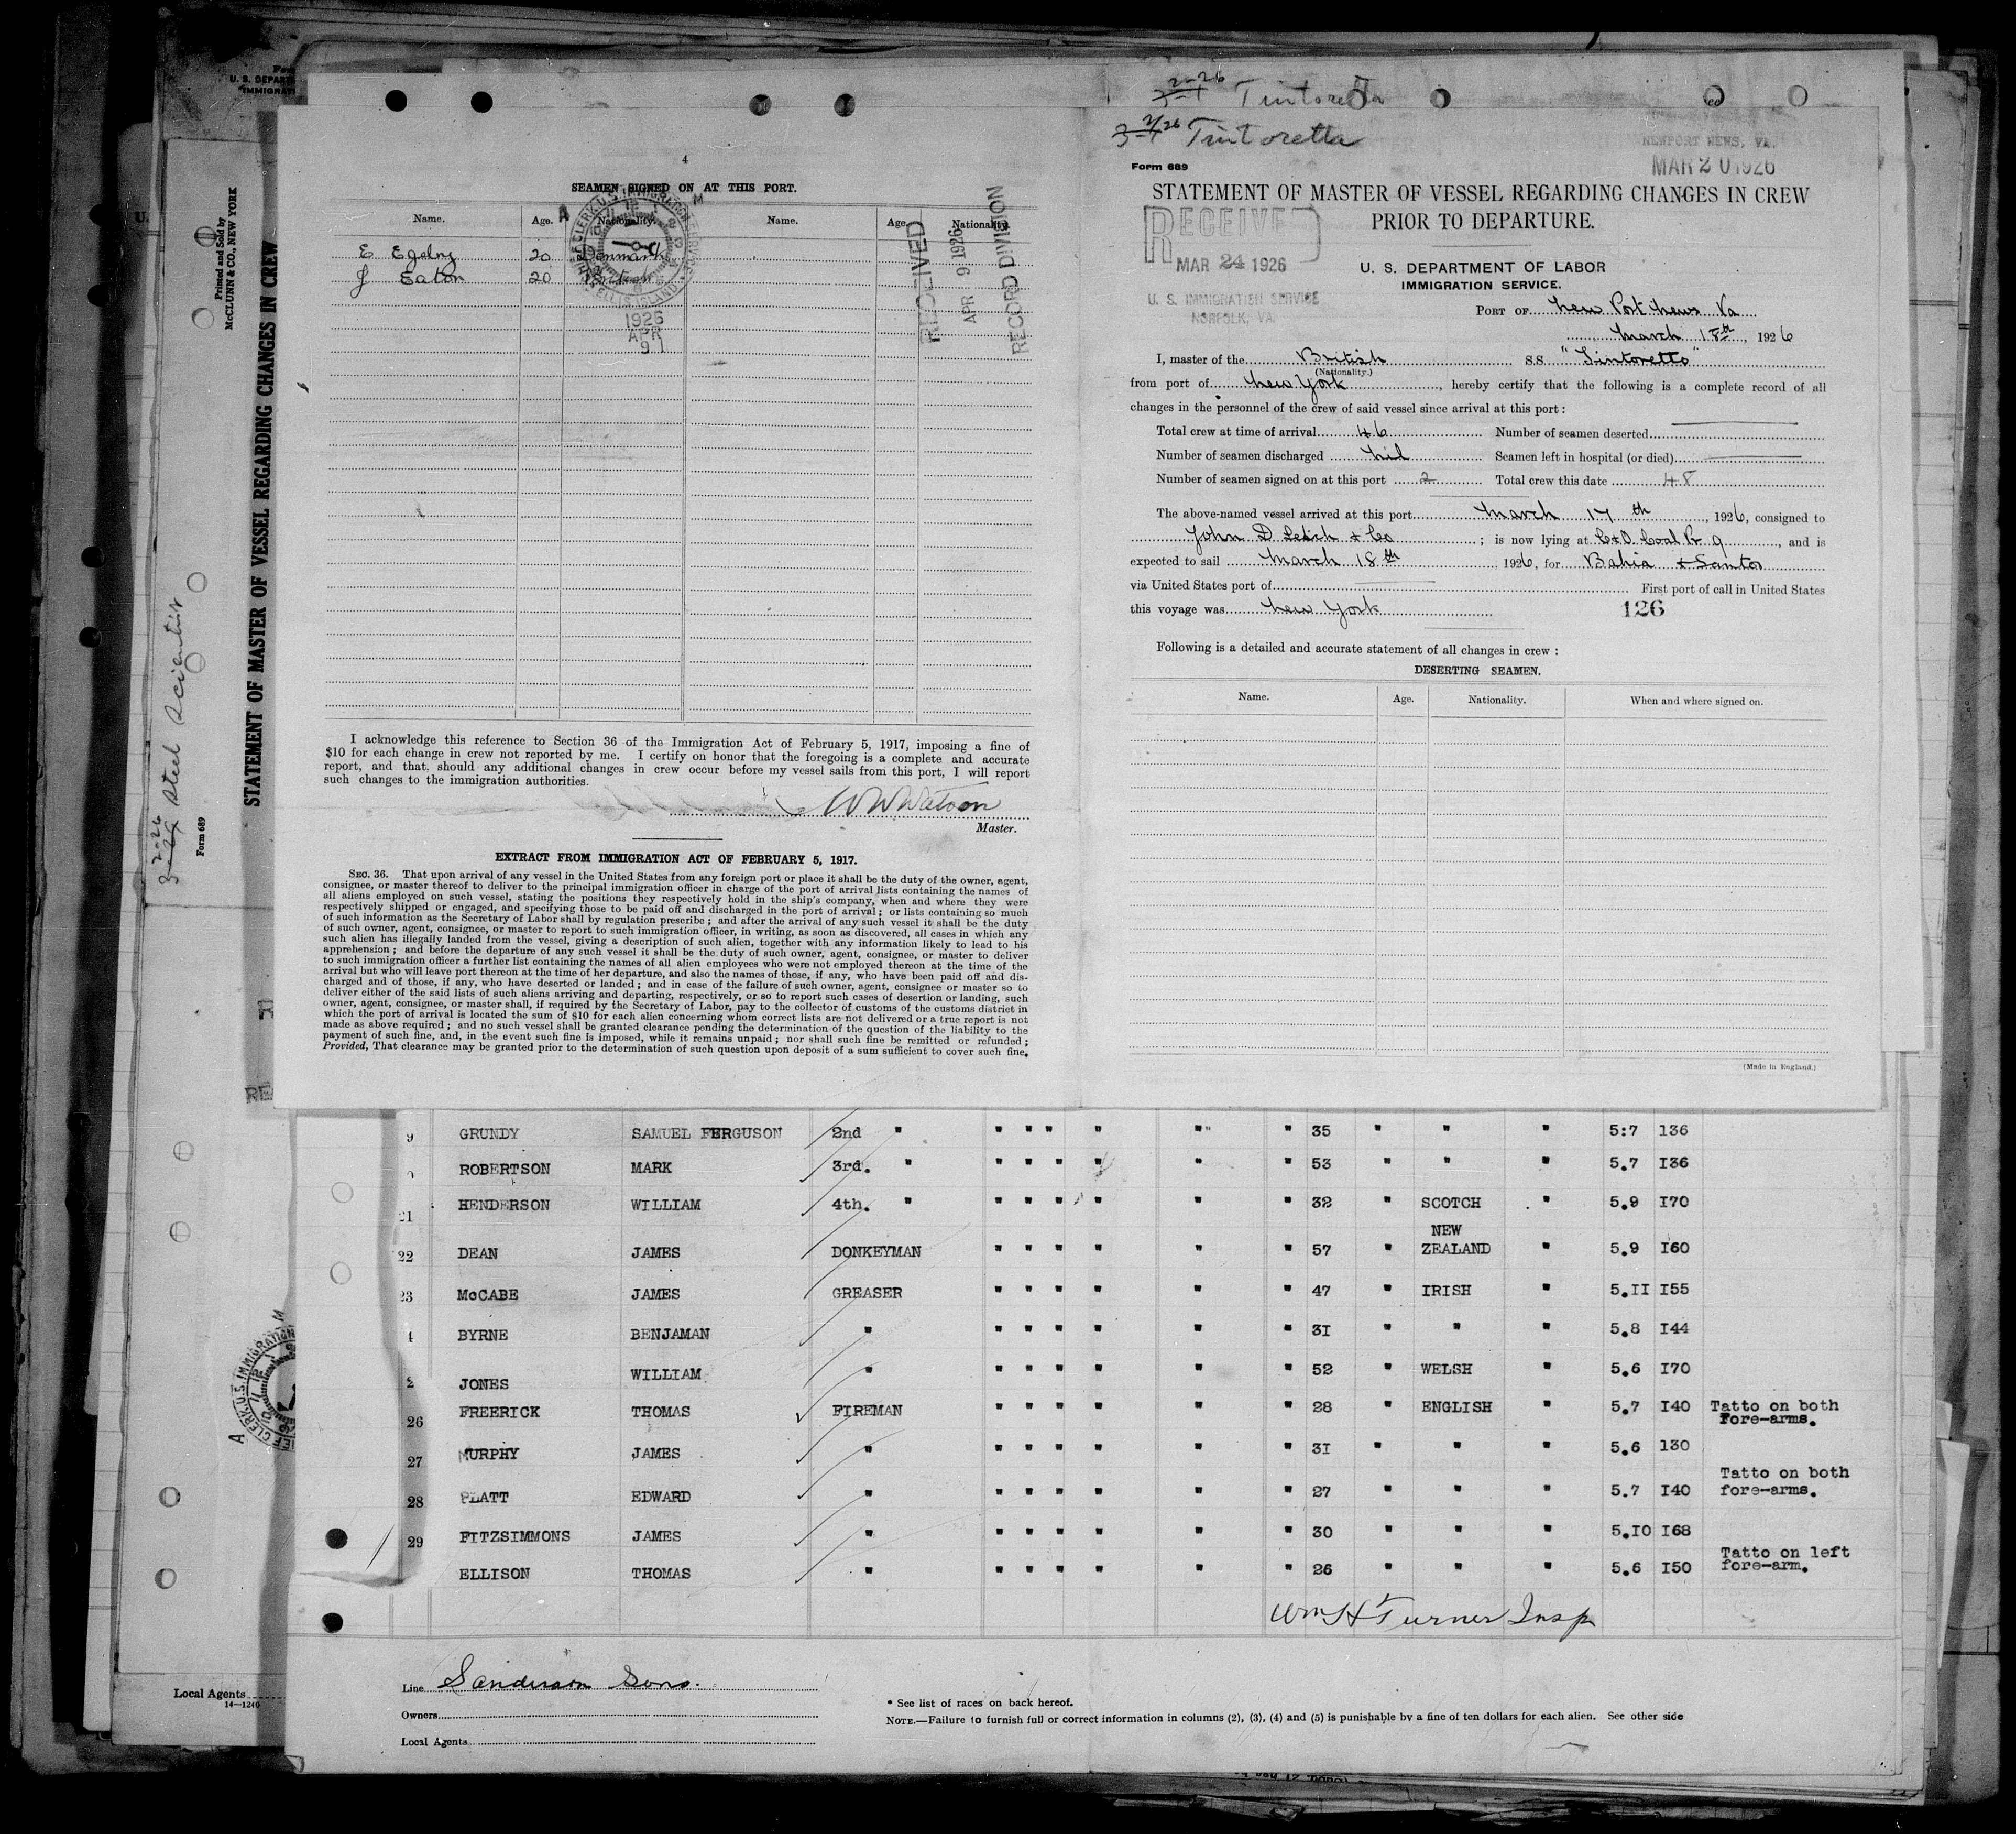 3-2-26 Tintoretta
3-2/26 Tintoretta
NEWPORT NEWS, VA.
MAR 20 1926
4
SEAMEN SIGNED ON AT THIS PORT.
Name. Age. Nationality. Name. Age. Nationality.
E 20 Denmark
J Eaton 20 British
CHIEF CLERK, U.S. IMMIGRATION SERVICE
ELLIS ISLAND
1926
APR
9
RECEIVED
APR 9 1926
RECORD DIVISION
I acknowledge this reference to Section 36 of the Immigration Act of February 5, 1917, imposing a fine of
$10 for each change in crew not reported by me. I certify on honor that the foregoing is a complete and accurate
report, and that, should any additional changes in crew occur before my vessel sails from this port, I will report
such changes to the immigration authorities.
W W Watson
Master.
EXTRACT FROM IMMIGRATION ACT OF FEBRUARY 5, 1917.
SEC. 36. That upon arrival of any vessel in the United States from any foreign port or place it shall be the duty of the owner, agent,
consignee, or master thereof to deliver to the principal immigration officer in charge of the port of arrival lists containing the names of
all aliens employed on such vessel, stating the positions they respectively hold in the ship's company, when and where they were
respectively shipped or engaged, and specifying those to be paid off and discharged in the port of arrival; or lists containing so much
of such information as the Secretary of Labor shall by regulation prescribe; and after the arrival of any such vessel it shall be the duty
of such owner, agent, consignee, or master to report to such immigration officer, in writing, as soon as discovered, all cases in which any
such alien has illegally landed from the vessel, giving a description of such alien, together with any information likely to lead to his
apprehension; and before the departure of any such vessel it shall be the duty of such owner, agent, consignee, or master to deliver
to such immigration officer a further list containing the names of all alien employees who were not employed thereon at the time of the
arrival but who will leave port thereon at the time of her departure, and also the names of those, if any, who have been paid off and dis-
charged and of those, if any, who have deserted or landed; and in case of the failure of such owner, agent, consignee or master so to
deliver either of the said lists of such aliens arriving and departing, respectively, or so to report such cases of desertion or landing, such
owner, agent, consignee, or master shall, if required by the Secretary of Labor, pay to the collector of customs of the customs district in
which the port of arrival is located the sum of $10 for each alien concerning whom correct lists are not delivered or a true report is not
made as above required; and no such vessel shall be granted clearance pending the determination of the question of the liability to the
payment of such fine, and, in the event such fine is imposed, while it remains unpaid; nor shall such fine be remitted or refunded;
Provided, That clearance may be granted prior to the determination of such question upon deposit of a sum sufficient to cover such fine.
Form 689
STATEMENT OF MASTER OF VESSEL REGARDING CHANGES IN CREW
PRIOR TO DEPARTURE.
RECEIVED
MAR 24 1926
U. S. IMMIGRATION SERVICE
NORFOLK, VA.
U. S. DEPARTMENT OF LABOR
IMMIGRATION SERVICE.
PORT OF New Port News Va
March 18th, 1926
I, master of the British S.S. "Tintoretto"
(Nationality.)
from port of New York, hereby certify that the following is a complete record of all
changes in the personnel of the crew of said vessel since arrival at this port:
Total crew at time of arrival 46 Number of seamen deserted
Number of seamen discharged Nil Seamen left in hospital (or died)
Number of seamen signed on at this port 2 Total crew this date 48
The above-named vessel arrived at this port March 17 th, 1926, consigned to
John D Leitch & Co; is now lying at C&O. Coal Pr 9, and is
expected to sail March 18th 1926, for Bahia & Santos
via United States port of First port of call in United States
this voyage was New York 126
Following is a detailed and accurate statement of all changes in crew:
DESERTING SEAMEN.
Name. Age. Nationality. When and where signed on.
(Made in England.)
9 GRUNDY SAMUEL FERGUSON 2nd " " " " " " " 35 " " " 5:7 136
ROBERTSON MARK 3rd. " " " " " " " 53 " " " 5.7 I36
21 HENDERSON WILLIAM 4th. " " " " " " " 32 " SCOTCH " 5.9 I70
22 DEAN JAMES DONKEYMAN " " " " " " 57 " NEW ZEALAND " 5.9 I60
23 McCABE JAMES GREASER " " " " " " 47 " IRISH " 5.II I55
BYRNE BENJAMAN " " " " " " " 3I " " " 5.8 I44
2 JONES WILLIAM " " " " " " " 52 " WELSH " 5.6 I70
26 FREERICK THOMAS FIREMAN " " " " " " 28 " ENGLISH " 5.7 I40 Tatto on both fore-arms.
27 MURPHY JAMES " " " " " " " 3I " " " 5.6 130
28 PLATT EDWARD " " " " " " " 27 " " " 5.7 I40 Tatto on both fore-arms.
29 FITZSIMMONS JAMES " " " " " " " 30 " " " 5.IO I68
ELLISON THOMAS " " " " " " " 26 " " " 5.6 I50 Tatto on left fore-arm.
Wm H Turner Insp
Line Sanderson Sons.
Owners
Local Agents
* See list of races on back hereof.
NOTE.—Failure to furnish full or correct information in columns (2), (3), (4) and (5) is punishable by a fine of ten dollars for each alien. See other side
U. S. DEPART
IMMIGRATI
Printed and Sold by
McCLUNN & CO., NEW YORK
STATEMENT OF MASTER OF VESSEL REGARDING CHANGES IN CREW
Form 689
Steel Scientist
Local Agents
14—1240